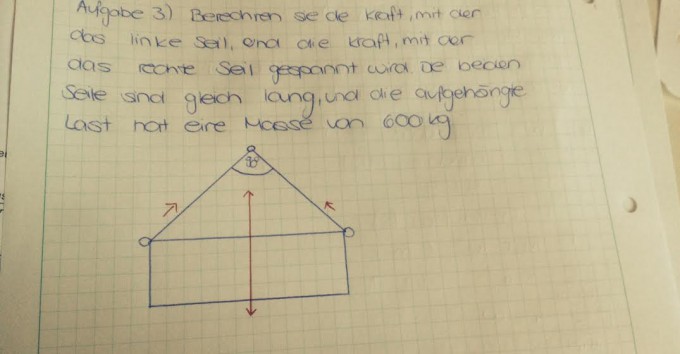 Aufgabe 3) Berechnen sie de Kraft, mit der
das linke Seil, und die Kraft, mit der
das rechte Seil gespannt wird. De beiden
Seile sind gleich lang, und die aufgehängte
Last hat eine Masse von 600 kg